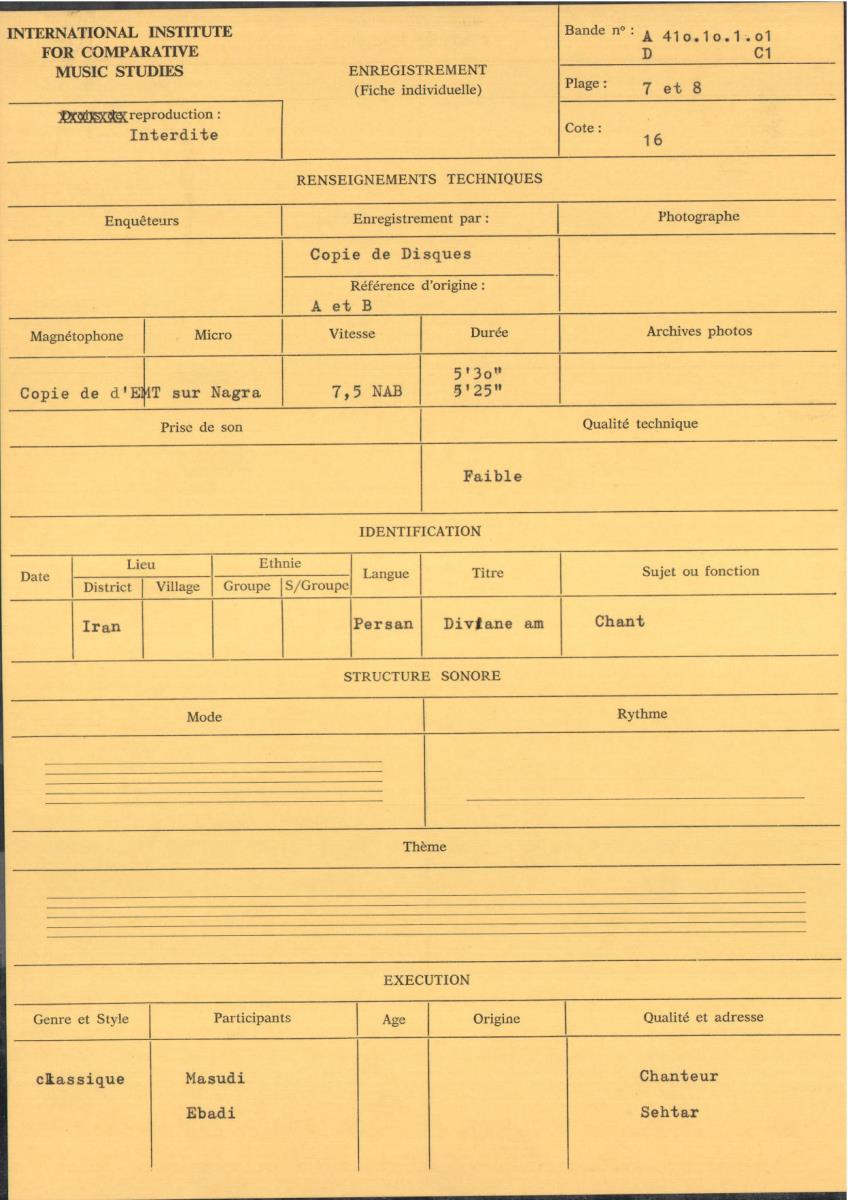 INTERNATIONAL INSTITUTE
FOR COMPARATIVE
MUSIC STUDIES
Droits de reproduction :
Interdite
ENREGISTREMENT
(Fiche individuelle)
Bande nº : A 41o.1o.1.o1
D C1
Plage : 7 et 8
Cote : 16
RENSEIGNEMENTS TECHNIQUES
Enquêteurs
Enregistrement par :
Photographe
Copie de Disques
Référence d'origine :
A et B
Magnétophone Micro Vitesse Durée Archives photos
5'3o"
Copie de d'EMT sur Nagra 7,5 NAB 5'25"
Prise de son Qualité technique
Faible
IDENTIFICATION
Date Lieu Ethnie Langue Titre Sujet ou fonction
District Village Groupe S/Groupe
Iran Persan Divane am Chant
STRUCTURE SONORE
Mode Rythme
Thème
EXECUTION
Genre et Style Participants Age Origine Qualité et adresse
classique Masudi Chanteur
Ebadi Sehtar